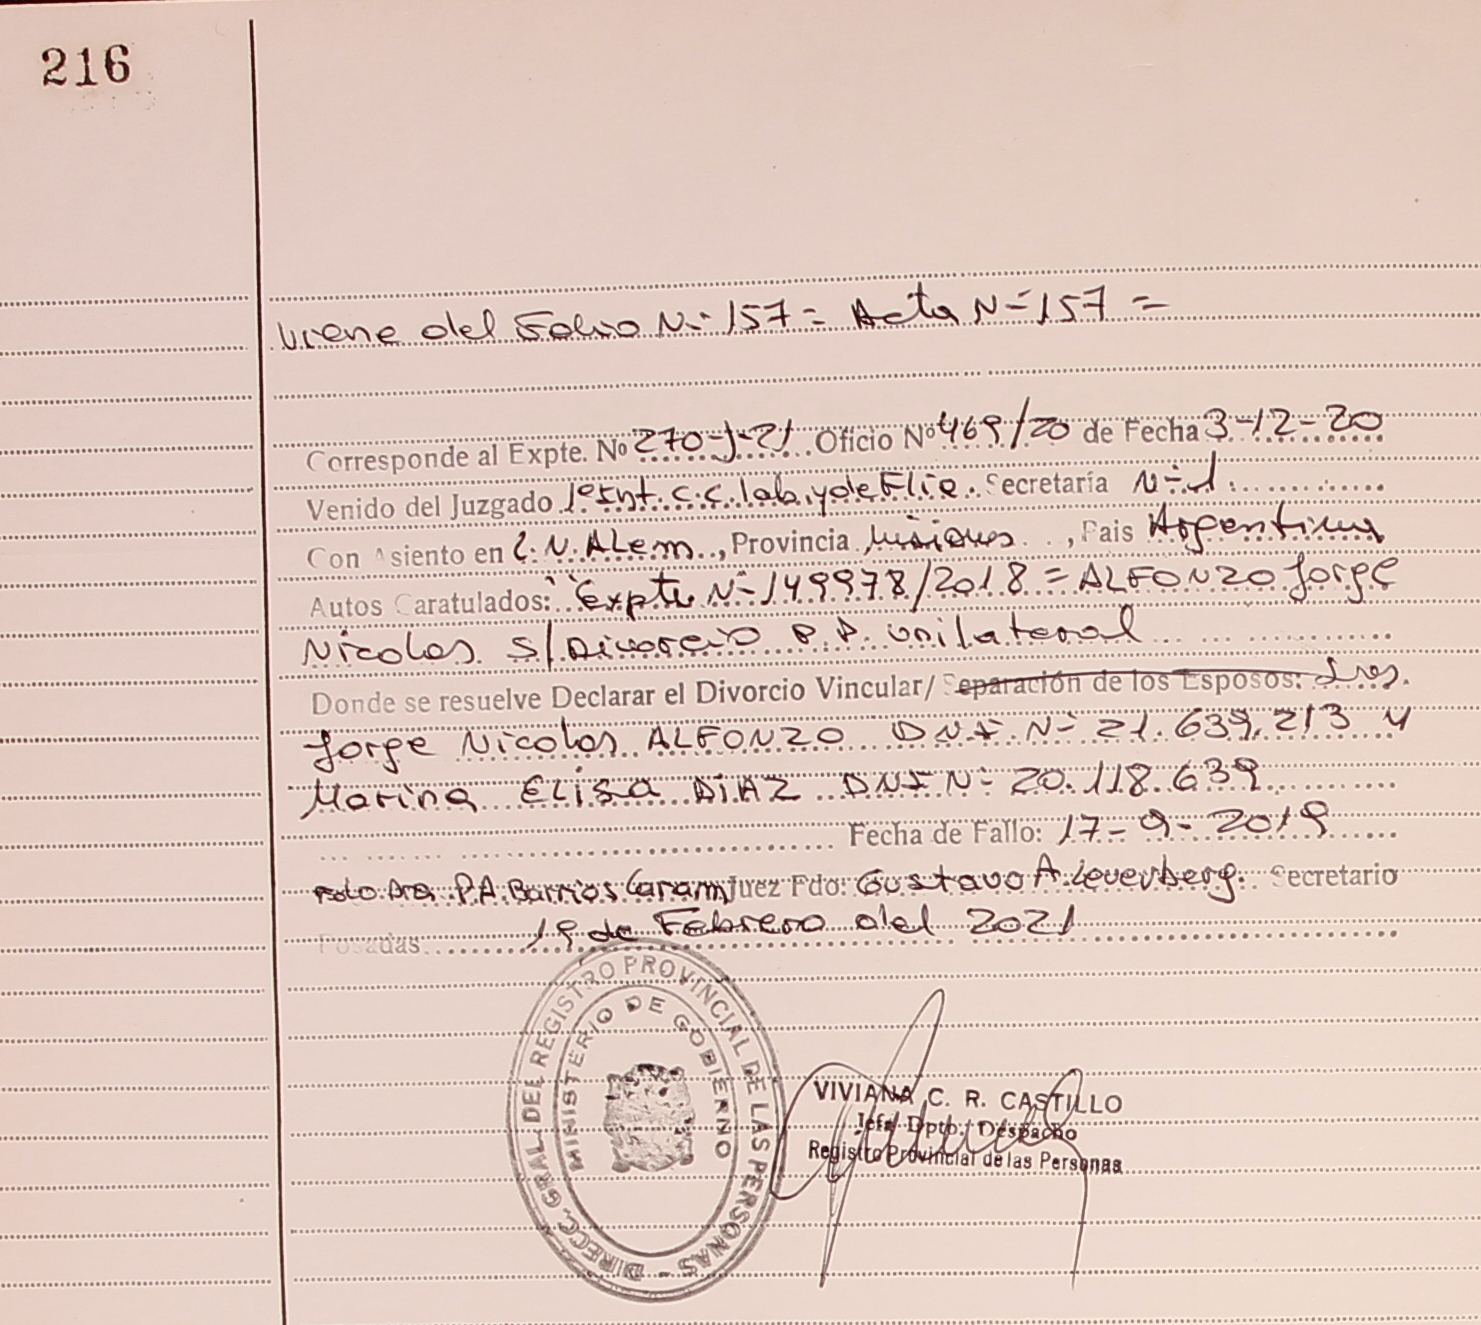 216
Viene del Folio N=157= Acta N=157=
Corresponde al Expte. Nº 270-J-21 Oficio Nº 469/20 de Fecha 3-12-20
Venido del Juzgado 1º Inst. C.C. lab. y de Flia. Secretaría N=1
Con Asiento en L.N. ALem, Provincia Misiones, Pais Argentina
Autos Caratulados: "Expte N=149978/2018=ALFONZO Jorge
Nicolas s/Divorcio P.P. unilateral
Donde se resuelve Declarar el Divorcio Vincular/ Separación de los Esposos: Sres.
Jorge Nicolas ALFONZO DNI N= 21.639.213 y
Marina ELisa DiAZ DNI N= 20.118.639
Fecha de Fallo: 17-9-2019
Fdo Dra. P.A. Barrios Caram Juez Fdo: Gustavo A. Leverberg. Secretario
Posadas 19 de Febrero del 2021
DIRECC. GRAL. DEL REGISTRO PROVINCIAL DE LAS PERSONAS -
MINISTERIO DE GOBIERNO
VIVIANA C. R. CASTILLO
Jefa Dpto. Despacho
Registro Provincial de las Personas